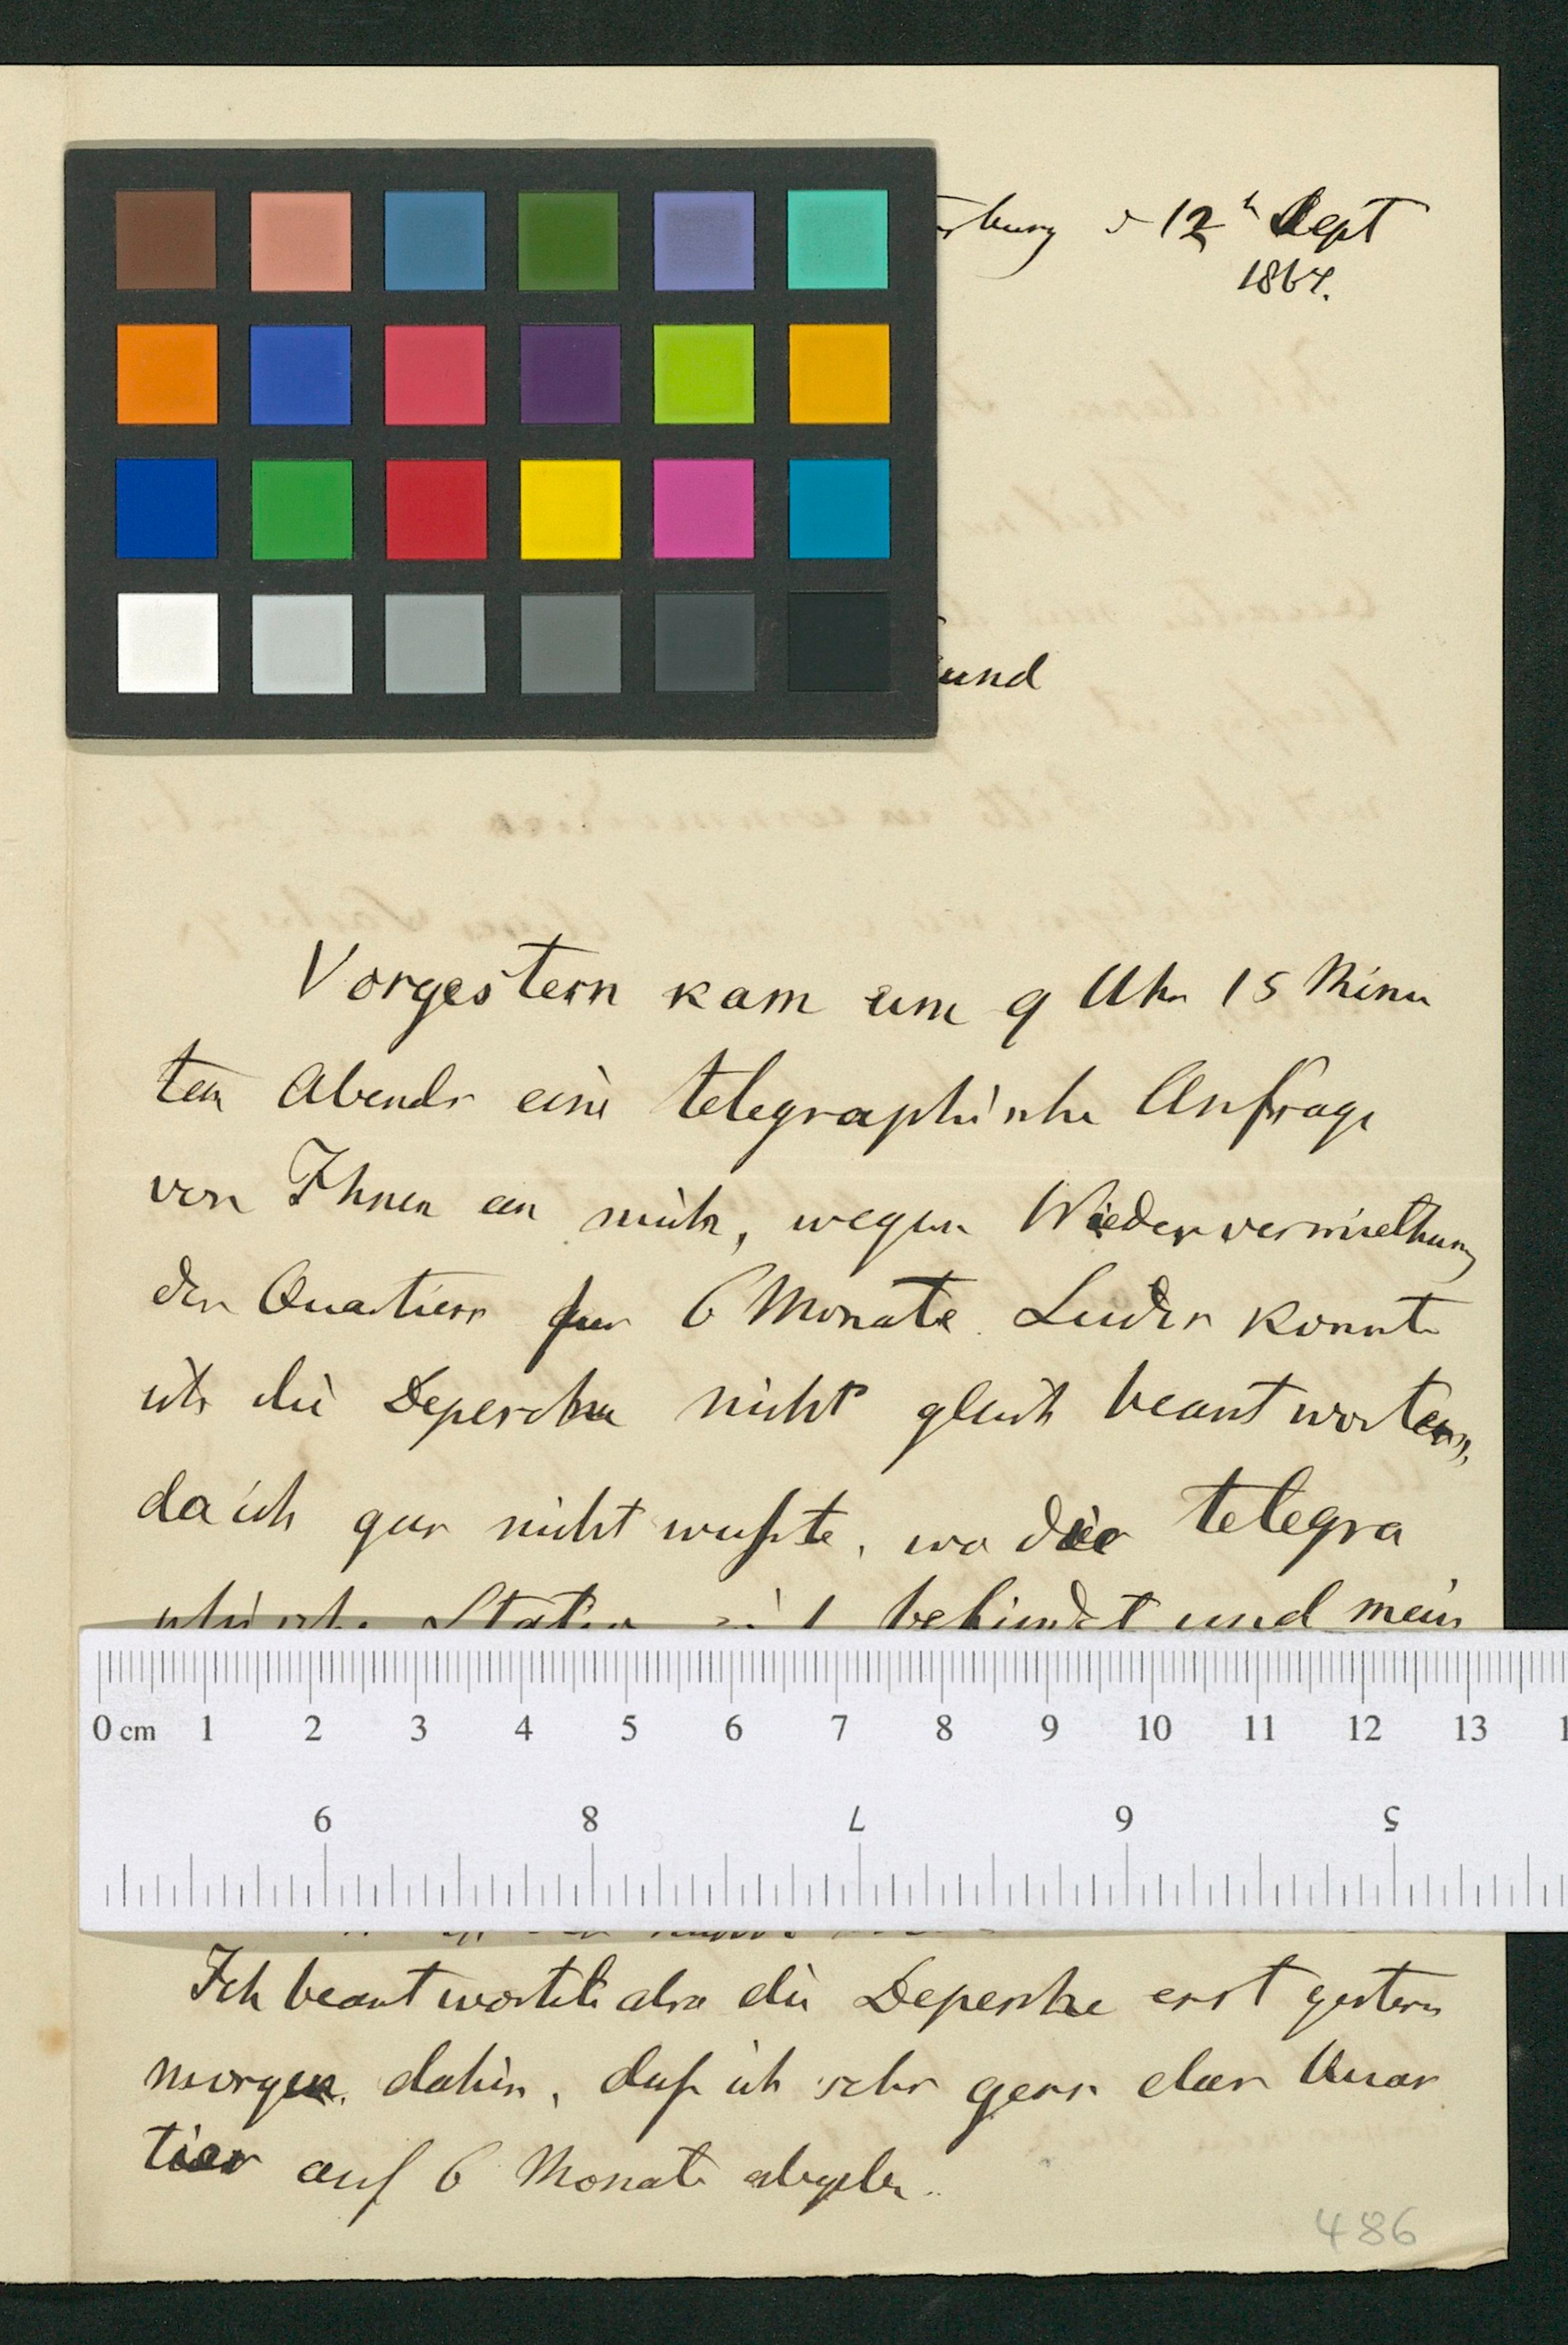 d 12t Sept
1864.
Vorgestern kam um 9 Uhr 15 Minu
ten Abends eine telegraphische Anfrage
von Ihnen an mich, wegen Wiedervermiethung
des Quartiers fur 6 Monate. Leider konnte
ich die Depesche nicht gleich beantworten,
da ich gar nicht wußte, wo die telegra
phische Station behindet und mein
0 cm 1 2 3 4 5 6 7 8 9 10 11 12 13
9 8 7 6 5
Ich beantwortete also die Depesche erst gestern
morgen dahin, daß ich sehr gern das Quar
tier auf 6 Monate abgebe.
486